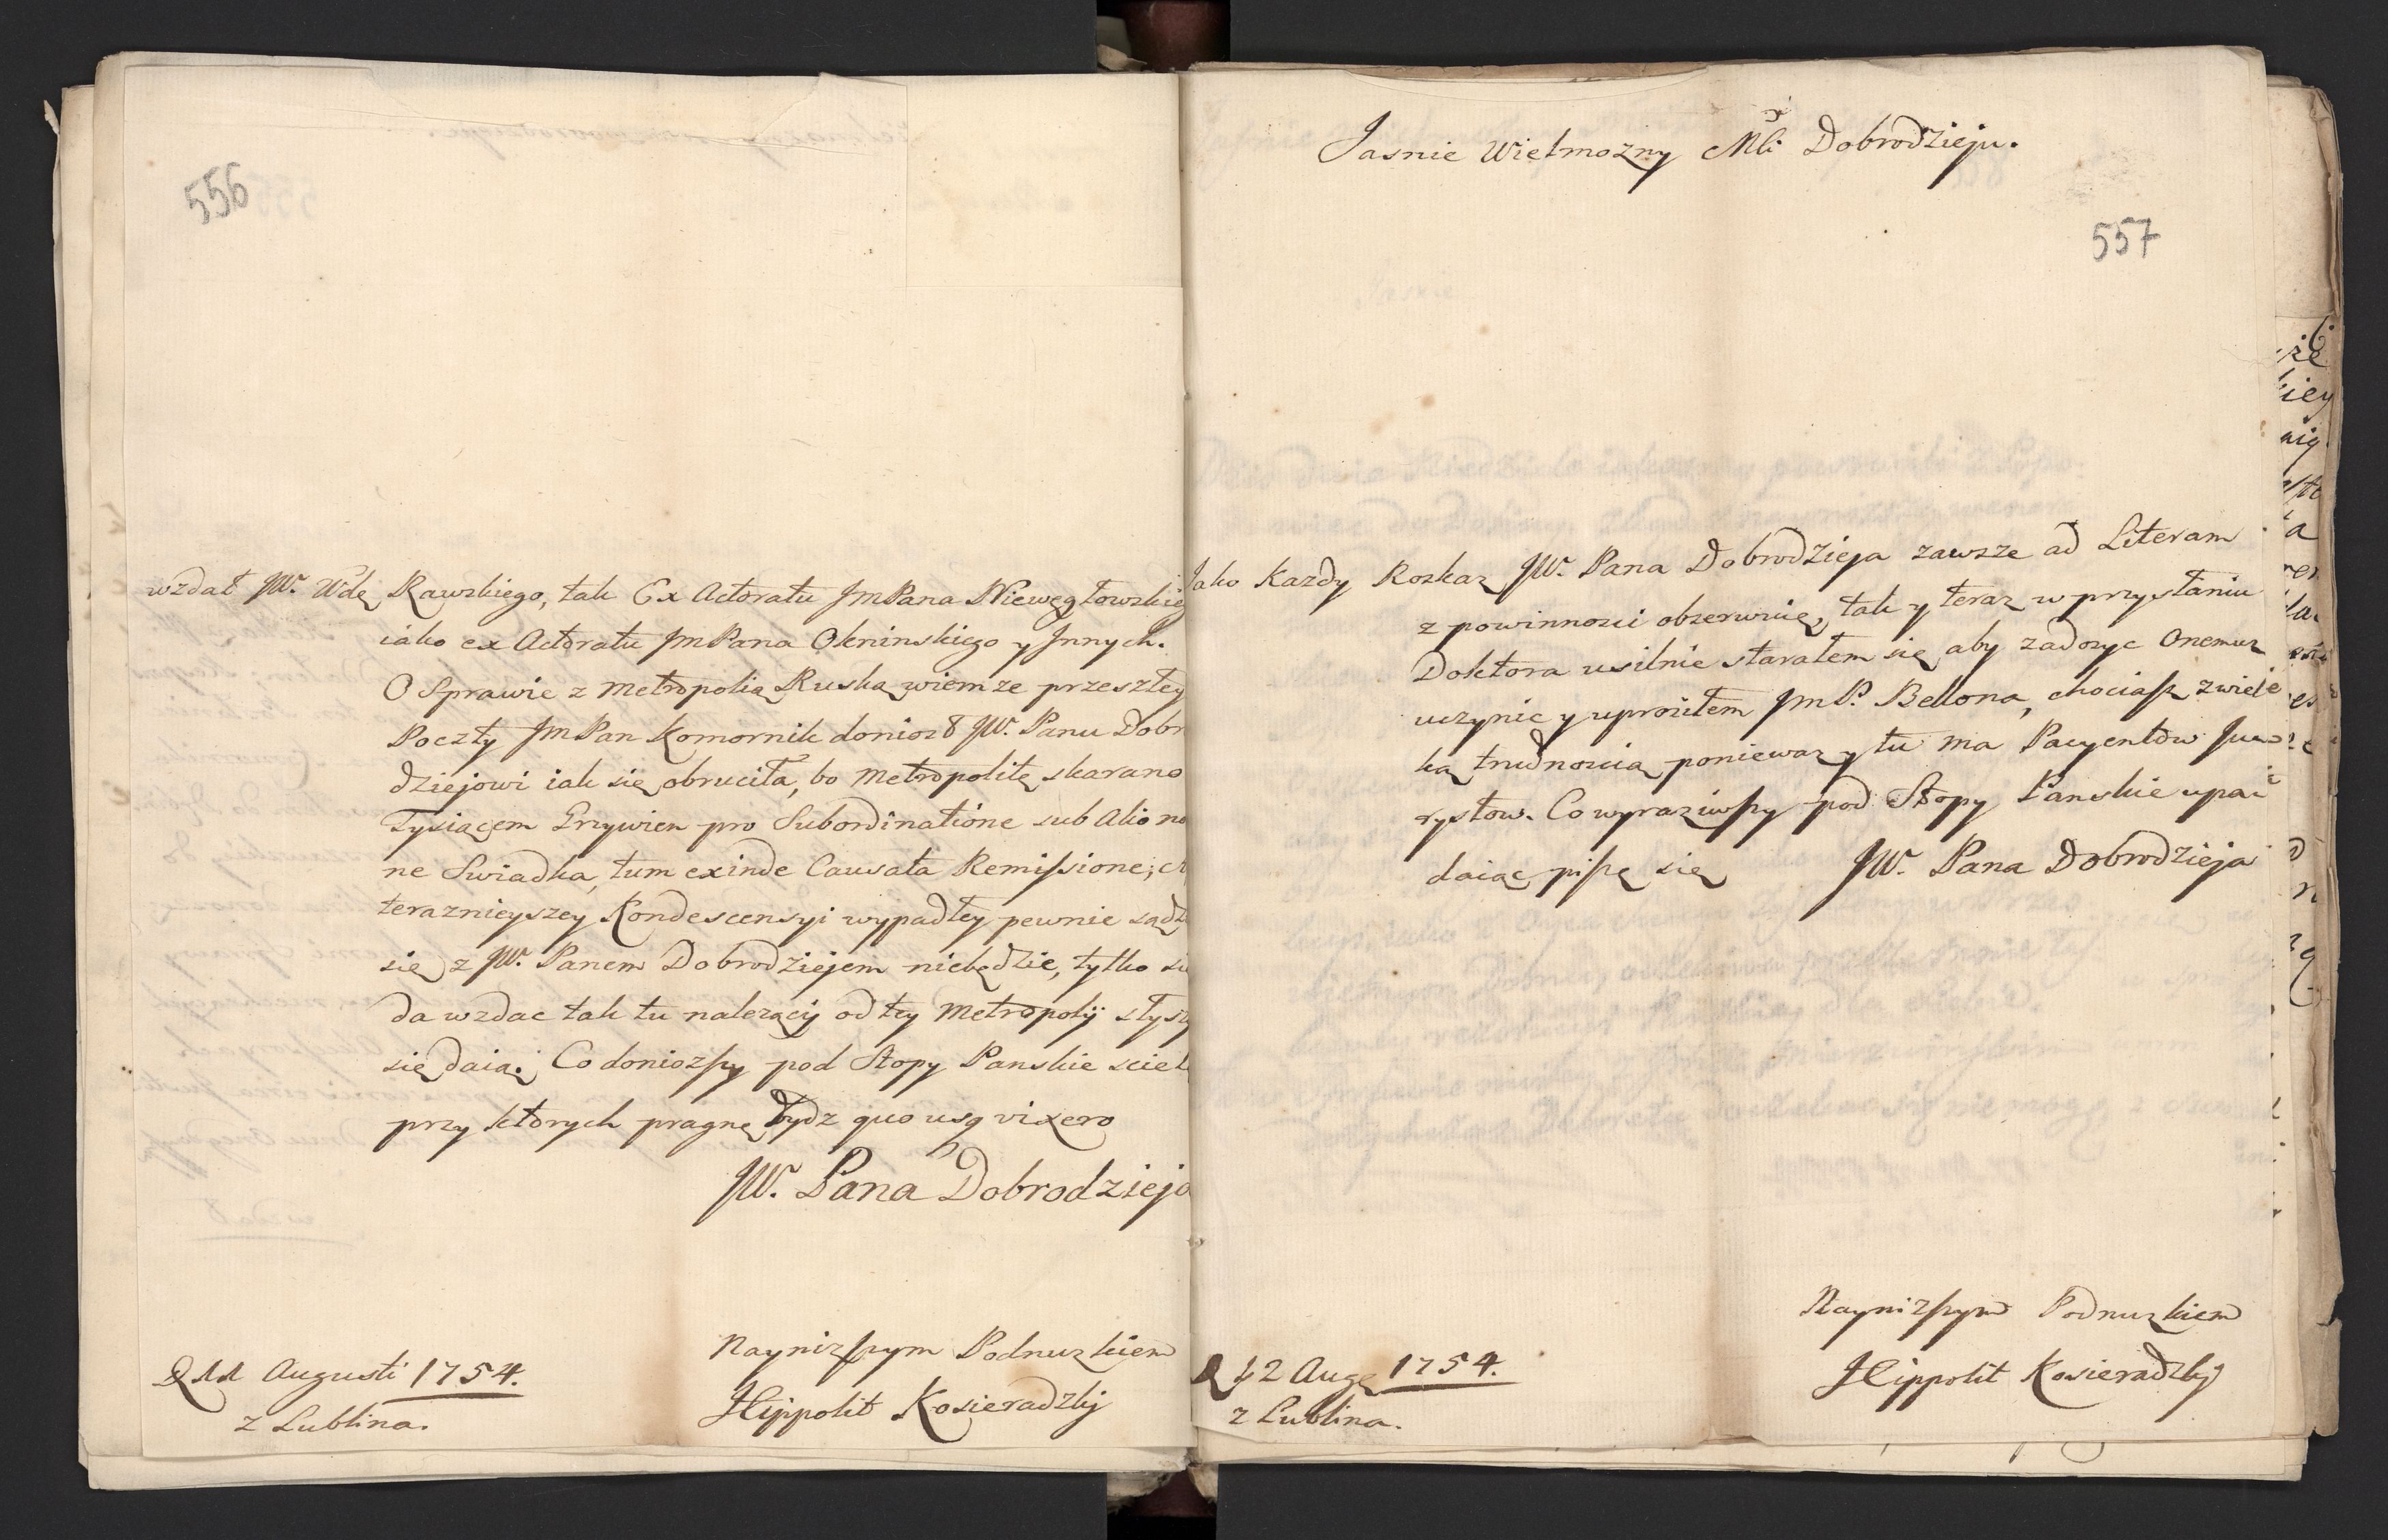 556
wzdał JW. Wdę Rawskiego, tak Ex Actoratu JmPana Niewęgłowskieg
iako ex Actoratu JmPana Okninskiego y Innych.
O Sprawie z Metropolią Ruską wiem ze przeszłey
Poczty JmPan Komornik doniosł JW. Panu Dobr
dziejowi iak się obruciła, bo Metropolitę skarano
Tysiącem Grzywien pro Subordinatione sub Alio no
ne Swiadka, tum exinde Causata Remissione;
teraznieyszey Kondescensyi wypadłey pewnie sądz
się z JW. Panem Dobrodziejem niebędzie, tylko
da wzdac tak tu nalezący od tey Metropolÿ słysz
się daią. Co doniozszy pod Stopy Panskie sciel
przy ktorych pragnę bydz quo usq vixero
JW. Pana Dobrodzieja
Nayniższym Podnuzkiem
Hippolit Kosieradzkij
D 11 Augusti 1754.
z Lublina.
Jasnie Wielmozny Mći Dobrodzieju.
557
Jako Kazdy Roskaz JW. Pana Dobrodzieja zawsze ad Literam
z powinnosci obserwuię, tak y teraz w przysłaniu
Doktora usilnie starałem się aby zadosyc Onemuz
uczynic y uprosiłem JmP. Bellona, chociasz z wiel
ką trudnoscią poniewaz y tu ma Pacyentow Ju
rystow. Co wyraziwszy pod Stopy Panskie upa
daiąc piszę się JW. Pana Dobrodzieja
Nayniższym Podnuzkiem
Hippolit Kosieradzkij
D 12 Augę 1754.
z Lublina.